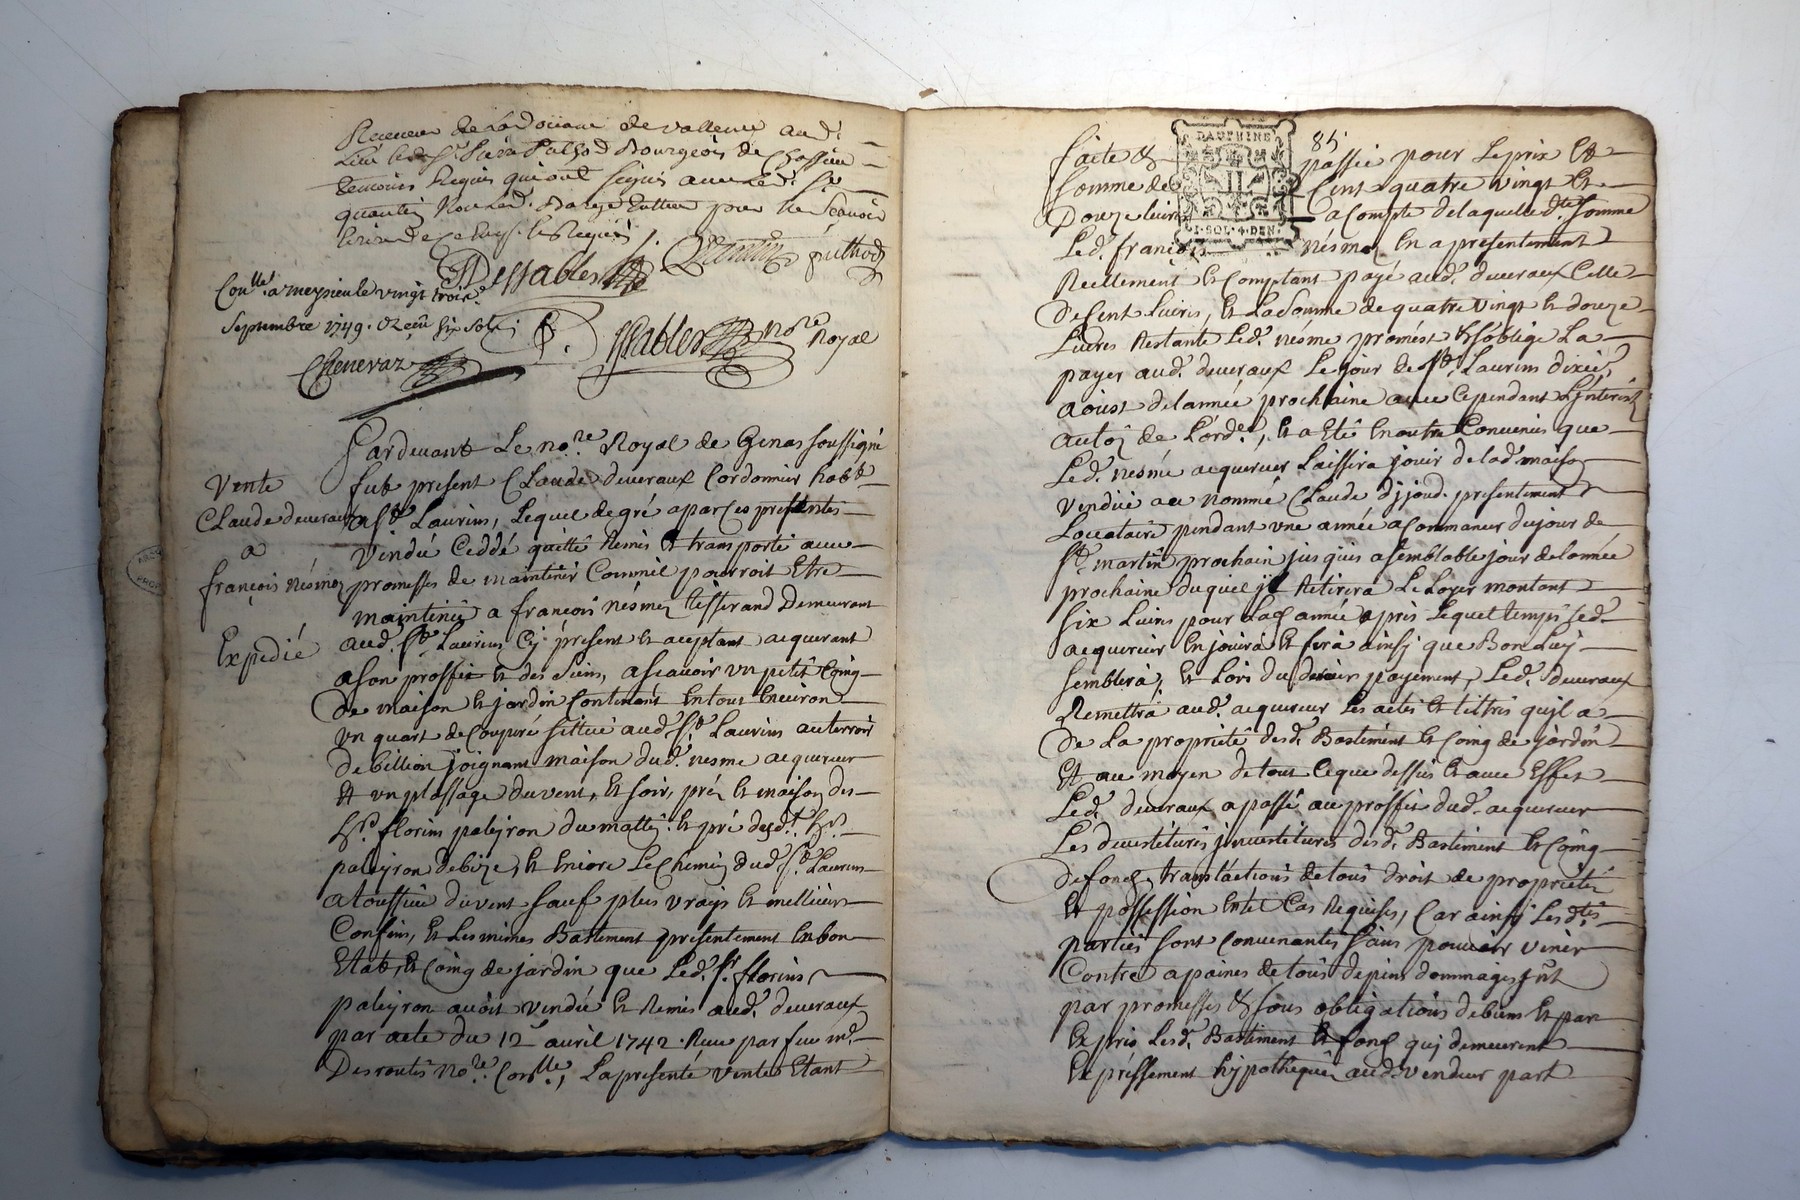 Receveur de la doüane de valence aud.
lieu led. Sr. Puthod Bourgeois de Chassieu
temoins Requis qui ont signés avec led. Sr.
quantin Non led.
Dessables
puthod
Conllé. a meysieu le vingt trois
Septembre 1749. Receu six sols
Chenevaz
Dessables nore. Royal
Vente
Claude deveraux
a
françois nésmé
Expedié
Pardevant Le nore. Royal de Genas soussigné
fut present Claude deveraux Cordonnier habt.
a St. Laurins, Lequel de gré a par Ces presentes
Vendu Ceddé quitté Remis Et transporté avec
promesses de maintenir Comme il pourroit Etre
maintenu a françois nésmé tisserand Demeurant
aud. St. Laurins Cy present et aceptant aquerant
a son proffit et des siens, a scavoir un petit Coing
De maison et jardin Contenant En tout Environ
un quart de Couperé sittué aud. St. Laurins au terroir
de billion joignant maison dud. nesme aquereur
Et un passage du vent, et soir, pré et maison des
hrs. florins paleyron du mattin. et pré desd. hrs.
paleyron de bize, et Encore Le Chemin dud. St. Laurins
a toussieu du vent sauf plus vrays et meillieurs
Confins, et Les mêmes Bastiment presentement En bon
Etat, et Coing de jardin que Led. Sr. florins
paleyron avoit vendu et Remis aud. deveraux
par acte du 12e avril 1742. Receu par feu me.
Desroutes nore. Conllé., La presente vente Etant
85
DAUPHINE
II
1. SOL. 4. DEN.
faite & passée pour Le prix Et
Somme de Cent quatre vingt Et
Douze livres a Compte de laquelle dte. Somme
Led. françois nésmé En a presentement
Reellement et Comptant payé aud. deveraux Celle
de Cent Livres, et La Somme de quatre vingt et douze
Livres Restante Led. nésme promest et s'oblige La
payer aud. deveraux Le jour de St. Laurins dixie.
aoust de l'année prochaine avec Cependant L'Interest
au toz de L'orde., et a Eté En outre Convenus que
Led. nesmé aquereur Laissera jouir de lad. maison
vendüe au nommé Claude presentement
Locataire pendant une année a Commancer du jour de
St. martin prochain jusques a semblable jour de l'année
prochaine duquel jl Retirera Le Loyer montant
Six Livres pour lad. année apres Lequel temps Led.
aquereur En jouira et fera ainsy que Bon Luy
Semblera, et Lors du dernier payement, Led. deveraux
Remettra aud. aquereur Les actes et tittres qu'jl a
De La proprieté desd. Bastiment et Coing de jardin
Et au moyen de tout Ce que dessus et avec Effet
Led. deveraux a passé au proffit dud. aquereur
Les devestitures jnvestitures desd. Bastiment et Coing
de fond, translactions de tous droit de proprieté
Et possession En tel Cas Requises, Car ainsy Lesdtes.
parties sont Convenantes sans pouvoir venir
Contre a paines de tous depens dommages jnt.
par promesses & sous obligations de biens et par
Exprès Lesd. Bastiment et fond qui demeurent
Expressement hypothequés aud. vendeur part